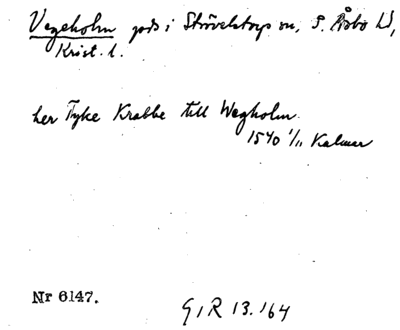 Vegeholm gods i Strövelstorps sn, S. Åsbo hd,
Krist. l.
her Tyke Krabbe till Wegholm.
1540 1/11 Kalmar
Nr 6147.
G I R 13. 164